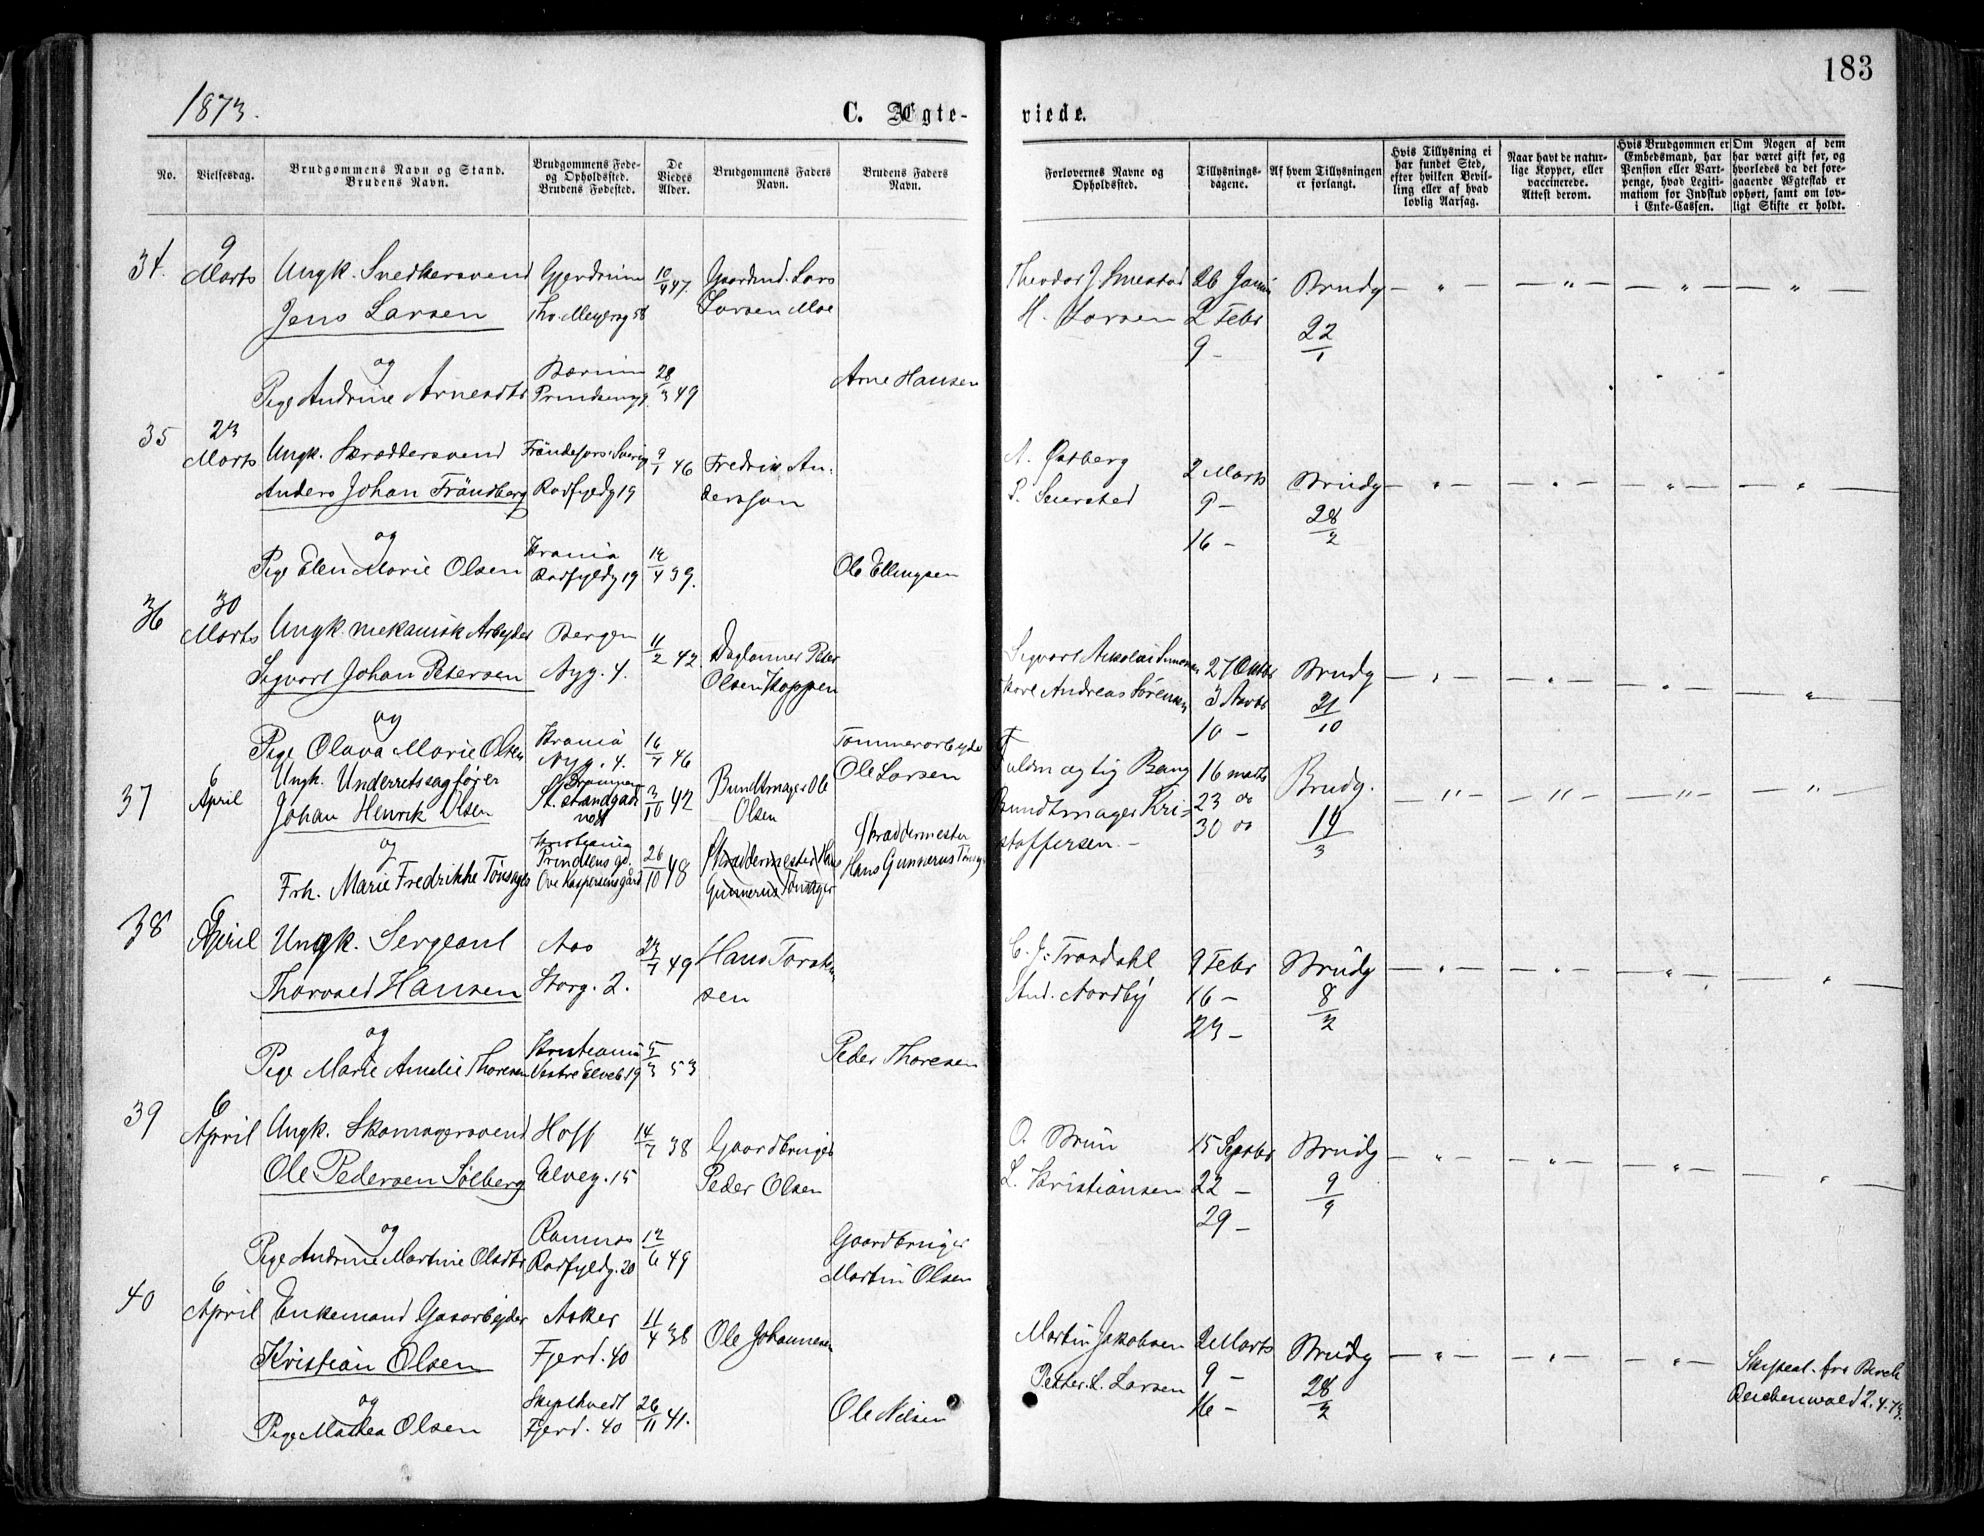 183
1873.
C. Ægte-
viede.
No.
Vielsesdag.
Brudgommens Navn og Stand.
Brudens Navn.
Brudgommens Føde-
og Opholdssted.
Brudens Fødested.
De
Viedes
Alder.
Brudgommens Faders
Navn.
Brudens Faders
Navn.
Forlovernes Navne og
Opholdssted.
Tillysnings-
dagene.
Af hvem Tillysningen
er forlangt.
Hvis Tillysning ei
har fundet Sted,
efter hvilken Bevil-
ling eller af hvad
lovlig Aarsag.
Naar havt de natur-
lige Kopper, eller
vaccinerede.
Attest derom.
Hvis Brudgommen er
Embedsmand, har
Pension eller Vart-
penge, hvad Legiti-
mation for Indskud
i Enke-Cassen.
Om Nogen af dem
har været gift før, og
hvorledes da det fore-
gaaende Ægteskab er
ophørt, samt om lov-
ligt Skifte er holdt.
34. 9 Marts
Ungk. Snedkersvend
Jens Larsen
Gjerdrum
Th. Meyersg 58
10/4 47.
Gaardmd. Lars
Larsen Moe
Theodor J. Smestad
H. Larsen
26 Janu
2 Febr
9 -
Brudg
22/1
og
Pige Andrine Arnesdtr
Bærum
Prindsensg
28/3 49
Arne Hansen
35 23 Marts
Ungk. Skræddersvend
Anders Johan Frändberg
Frändefors Sverig
Rodfyldg 19
9/1 46
Fredrik An-
dersson
A. Østberg
P. Seiersted
2 Marts
9 -
16 -
Brudg
28/2
og
Pige Elen Marie Olsen
Krania
Rodfyldg 19
12/4 39.
Ole Ellingsen
36 30 Marts
Ungk. mekanisk Arbeyder
Sigvart Johan Petersen
Bergen
Nyg. 4.
11/2 42.
Daglønner Peter
Olsen Koppen
Sigvart Nikolai
Karl Andreas Sørensen
27 Oktbr
3 Novbr
10 -
Brudg
21/10
og
Pige Olava Marie Olsen
Krania
Nyg. 4.
16/7 46
Tømmerarbeyder
Ole Larsen
37 6 April
Ungk. Underretssagfører
Johan Henrik Olsen
St. strandgade
3/10 42
Bundtmager Ole
Olsen
Fuldmægtig Bang
Bundtmager Kri-
stoffersen. -
16 marts
23 do
30 do
Brudg.
14/3
og
Frk. Marie Fredrikke Tönsager
Kristiania
Prindsens gd.
Ove Kaspersensgård
26/10 48
Skraddermester Hans
Gunnerus Tönsager
Skraddermester
Hans Gunnerus Tönsager
38 6 April
Ungk. Sergeant
Thorvald Hansen
Aas
Storg. 2.
23/7 49
Hans Torsten
sen
C. J. Trondahl
And. Nordby
9 Febr
16 -
23 -
Brudg
8/2
og
Pige Marie Amelie Thoresen
Kristiania
Vestre Elveb 19
5/3 53
Peder Thoresen
39 6 April
Ungk. Skomagersvend
Ole Pedersen Sølberg
Hoff
Elveg. 15
14/7 38
Gaardbruger
Peder Olsen
O. Brun
L. Kristiansen
15 Septbr
22 -
29 -
Brudg
9/9
og
Pige Andrine Martine Olsdtr
Ramnæs
Rodfyldg. 20
12/6 49
Gaardbruger
Martin Olsen
40 6 April
Enkemand Gasarbejder
Kristian Olsen
Asker
Fjerd. 40
11/4 38
Ole Johannesen
Martin Jakobsen
Petter. L. Larsen
2 Marts
9 -
16 -
Brudg
28/2
Skifteat. fra Berch
Reichenwald 2.4.73.
og
Pige Mathea Olsen
Skiptvedt
Fjerd. 40
26/11 41.
Ole Nilsen